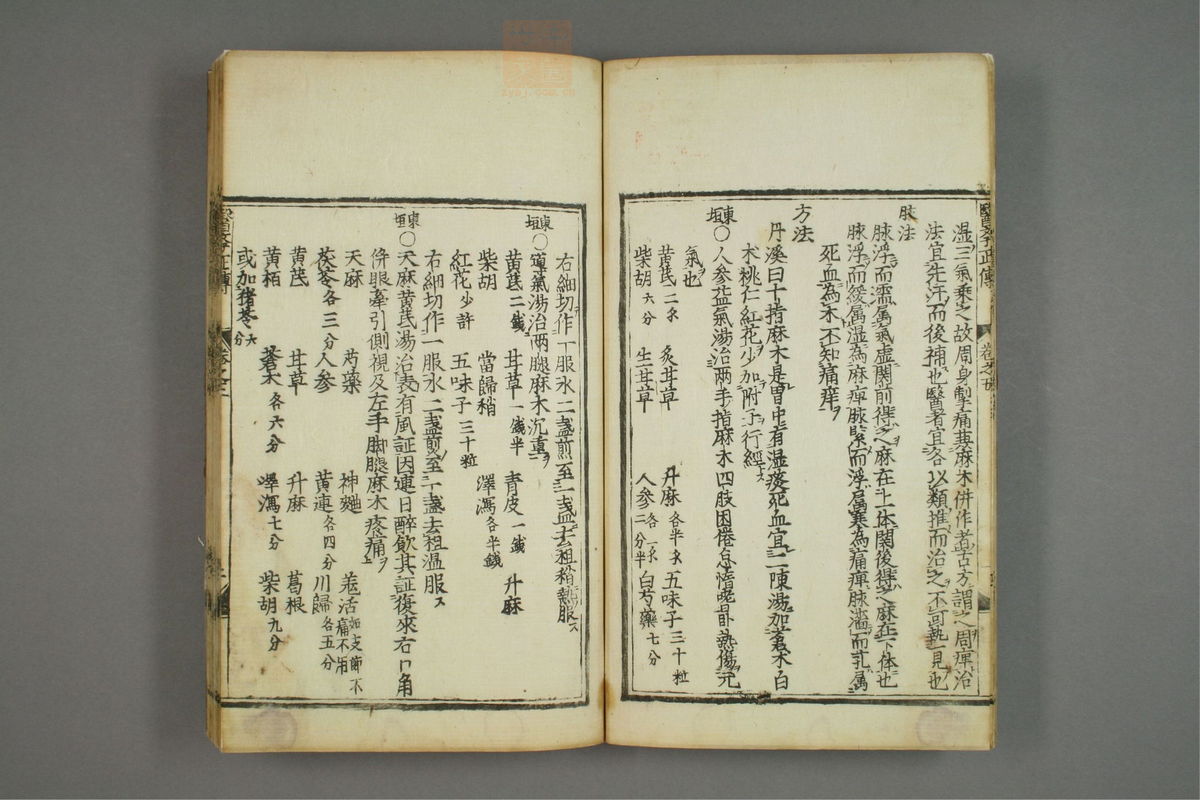 湿三氣乗之故周身掣痛䓤麻木併作者古方謂之周痺治
法宜先汗而後補也醫者宜各以類推而治之不可執一見也
脉法
脉浮而濡属氣虚関前得之麻在上体関後得之麻在下体也
脉浮而緩属湿為麻痺脉緊而浮属寒為痛痺脉濇而芤属
死血為木不知痛痒
方法
丹溪曰十指麻木是胃中有湿痰死血宜二陳湯加蒼木白
木桃仁紅花少加附子行經
東垣〇人参益氣湯治两手指麻木四肢困倦怠惰嗜卧熱傷元
氣也
黄芪二戋 炙甘草 升麻各半戋 五味子三十粒
柴胡六分 生甘草 人参各一戋二分半 白芍藥七分
右細切作一服水二盞煎至一盞去柤稍熱服
東垣〇導氣湯治两腿麻木沉重
黄芪二錢 甘草一錢半 青皮一錢 升麻
柴胡 當歸稍 澤瀉各半錢
紅花少許 五味子三十粒
右細切作一服水二盞煎至一盞去柤温服
東垣〇天麻黄芪湯治表有風証因連日醉飲其証復來右口角
併眼牽引側視及左手脚腿麻木疼痛
天麻 芍藥 神麯 羗活如支節不痛不用
茯苓各三分 人参 黄連各四分 川歸各五分
黄芪 甘草 升麻 葛根
黄栢 蒼木各六分 澤瀉七分 柴胡九分
或加猪苓六分
醫學正傳 卷之五